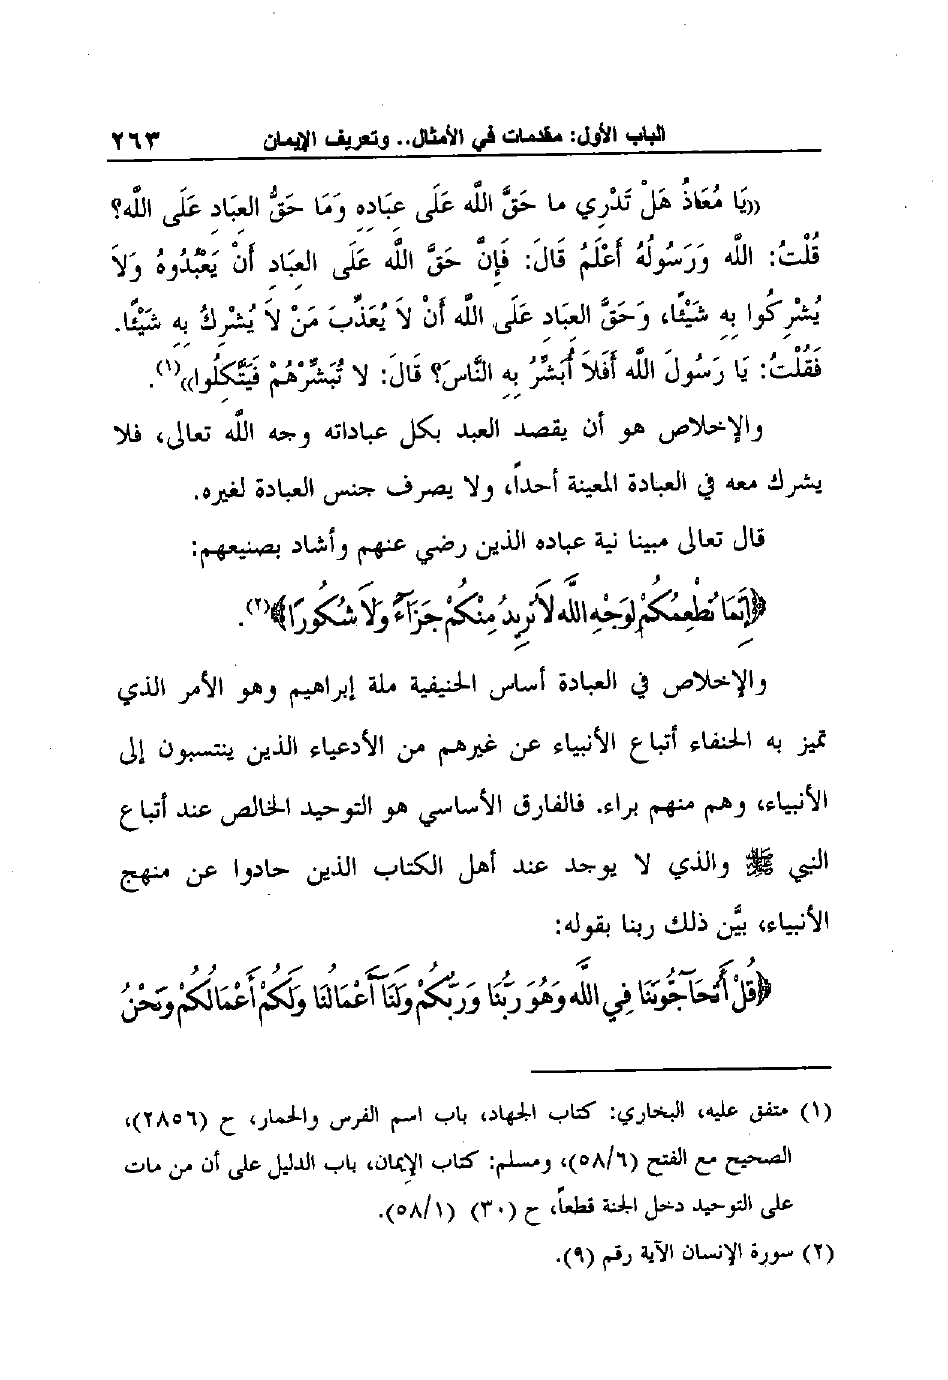 الباب الأول: مقدمات في الأمثال.. وتعريف الإيمان ٢٦٣
((يَا مُعَاذُ هَلْ تَدْرِي ما حَقَّ اللَّه عَلَى عِبَادِهِ وَمَا حَقُّ العِبَادِ عَلَى اللَّه؟
قُلْتُ: اللَّه وَرَسُولُهُ أَعْلَمُ قَالَ: فَإِنَّ حَقَّ اللَّه عَلَى العِبَادِ أَنْ يَعْبُدُوهُ وَلاَ
يُشْرِكُوا بِهِ شَيْئًا، وَحَقَّ العِبَادِ عَلَى اللَّه أَنْ لاَ يُعَذِّبَ مَنْ لاَ يُشْرِكُ بِهِ شَيْئًا.
فَقُلْتُ: يَا رَسُولَ اللَّه أَفَلاَ أُبَشِّرُ بِهِ النَّاسَ؟ قَالَ: لا تُبَشِّرْهُمْ فَيَتَّكِلُوا))(١).
والإخلاص هو أن يقصد العبد بكل عباداته وجه اللَّه تعالى، فلا
يشرك معه في العبادة المعينة أحداً، ولا يصرف جنس العبادة لغيره.
قال تعالى مبينا نية عباده الذين رضي عنهم وأشاد بصنيعهم:
﴿إِنَّمَا نُطْعِمُكُمْ لِوَجْهِ اللَّهِ لَا نُرِيدُ مِنْكُمْ جَزَاءً وَلَا شُكُورًا﴾(٢).
والإخلاص في العبادة أساس الحنيفية ملة إبراهيم وهو الأمر الذي
تميز به الحنفاء أتباع الأنبياء عن غيرهم من الأدعياء الذين ينتسبون إلى
الأنبياء، وهم منهم براء. فالفارق الأساسي هو التوحيد الخالص عند أتباع
النبي ﷺ والذي لا يوجد عند أهل الكتاب الذين حادوا عن منهج
الأنبياء، بيَّن ذلك ربنا بقوله:
﴿قُلْ أَتُحَاجُّونَنَا فِي اللَّهِ وَهُوَ رَبُّنَا وَرَبُّكُمْ وَلَنَا أَعْمَالُنَا وَلَكُمْ أَعْمَالُكُمْ وَنَحْنُ
(١) متفق عليه، البخاري: كتاب الجهاد، باب اسم الفرس والحمار، ح (٢٨٥٦)،
الصحيح مع الفتح (٥٨/٦)، ومسلم: كتاب الإيمان، باب الدليل على أن من مات
على التوحيد دخل الجنة قطعاً، ح (٣٠) (٥٨/١).
(٢) سورة الإنسان الآية رقم (٩).